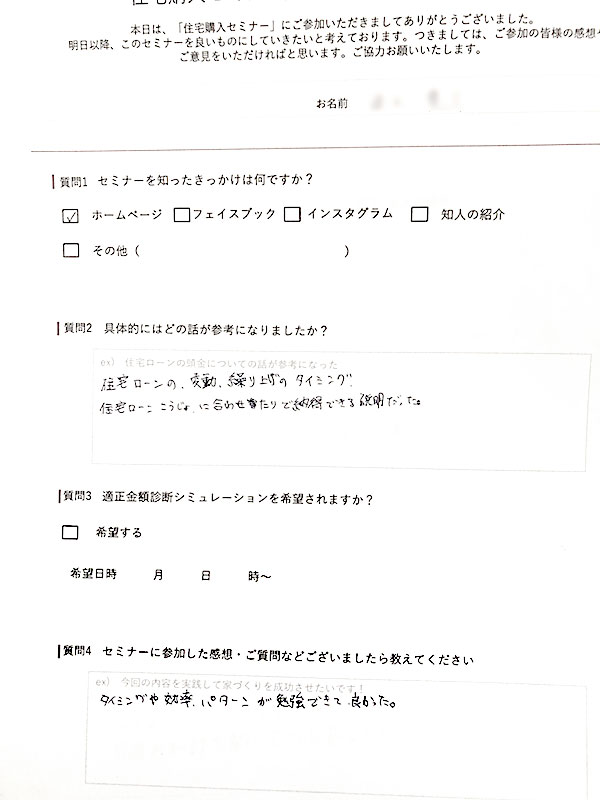 本日は、「住宅購入セミナー」にご参加いただきましてありがとうございました。
明日以降、このセミナーを良いものにしていきたいと考えております。つきましては、ご参加の皆様の感想や
ご意見をいただければと思います。ご協力お願いいたします。
お名前
質問1 セミナーを知ったきっかけは何ですか?
ホームページ フェイスブック インスタグラム 知人の紹介
その他 ( )
質問2 具体的にはどの話が参考になりましたか?
ex) 住宅ローンの頭金についての話が参考になった
住宅ローンの、変動、繰り上げのタイミング!
住宅ローンこうじょ、に合わせ 納得できる説明だった。
質問3 適正金額診断シミュレーションを希望されますか?
希望する
希望日時 月 日 時〜
質問4 セミナーに参加した感想・ご質問などございましたら教えてください
ex) 今回の内容を実践して家づくりを成功させたいです!
タイミングや効率、パターンが勉強できて良かった。